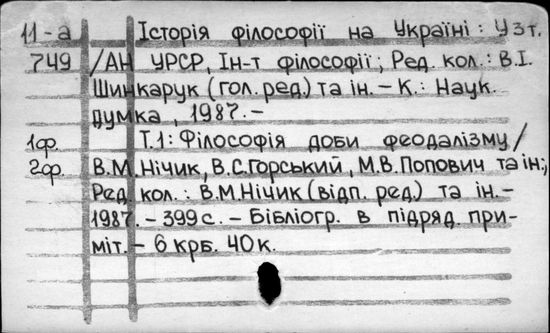 11-а Історія філософії на Україні: У 3 т.
749 /АН УРСР, Ін-т філософії; Ред. кол.: В.І.
Шинкарук (гол. ред.) та ін. – К.: Наук.
думка, 1987. –
1ф. Т.1: Філософія доби феодалізму /
2ф. В.М.Нічик, В.С.Горський, М.В.Попович та ін.;
Ред. кол.: В.М.Нічик (відп. ред.) та ін. –
1987. – 399 с. – Бібліогр. в підряд. при-
міт. – 6 крб. 40 к.